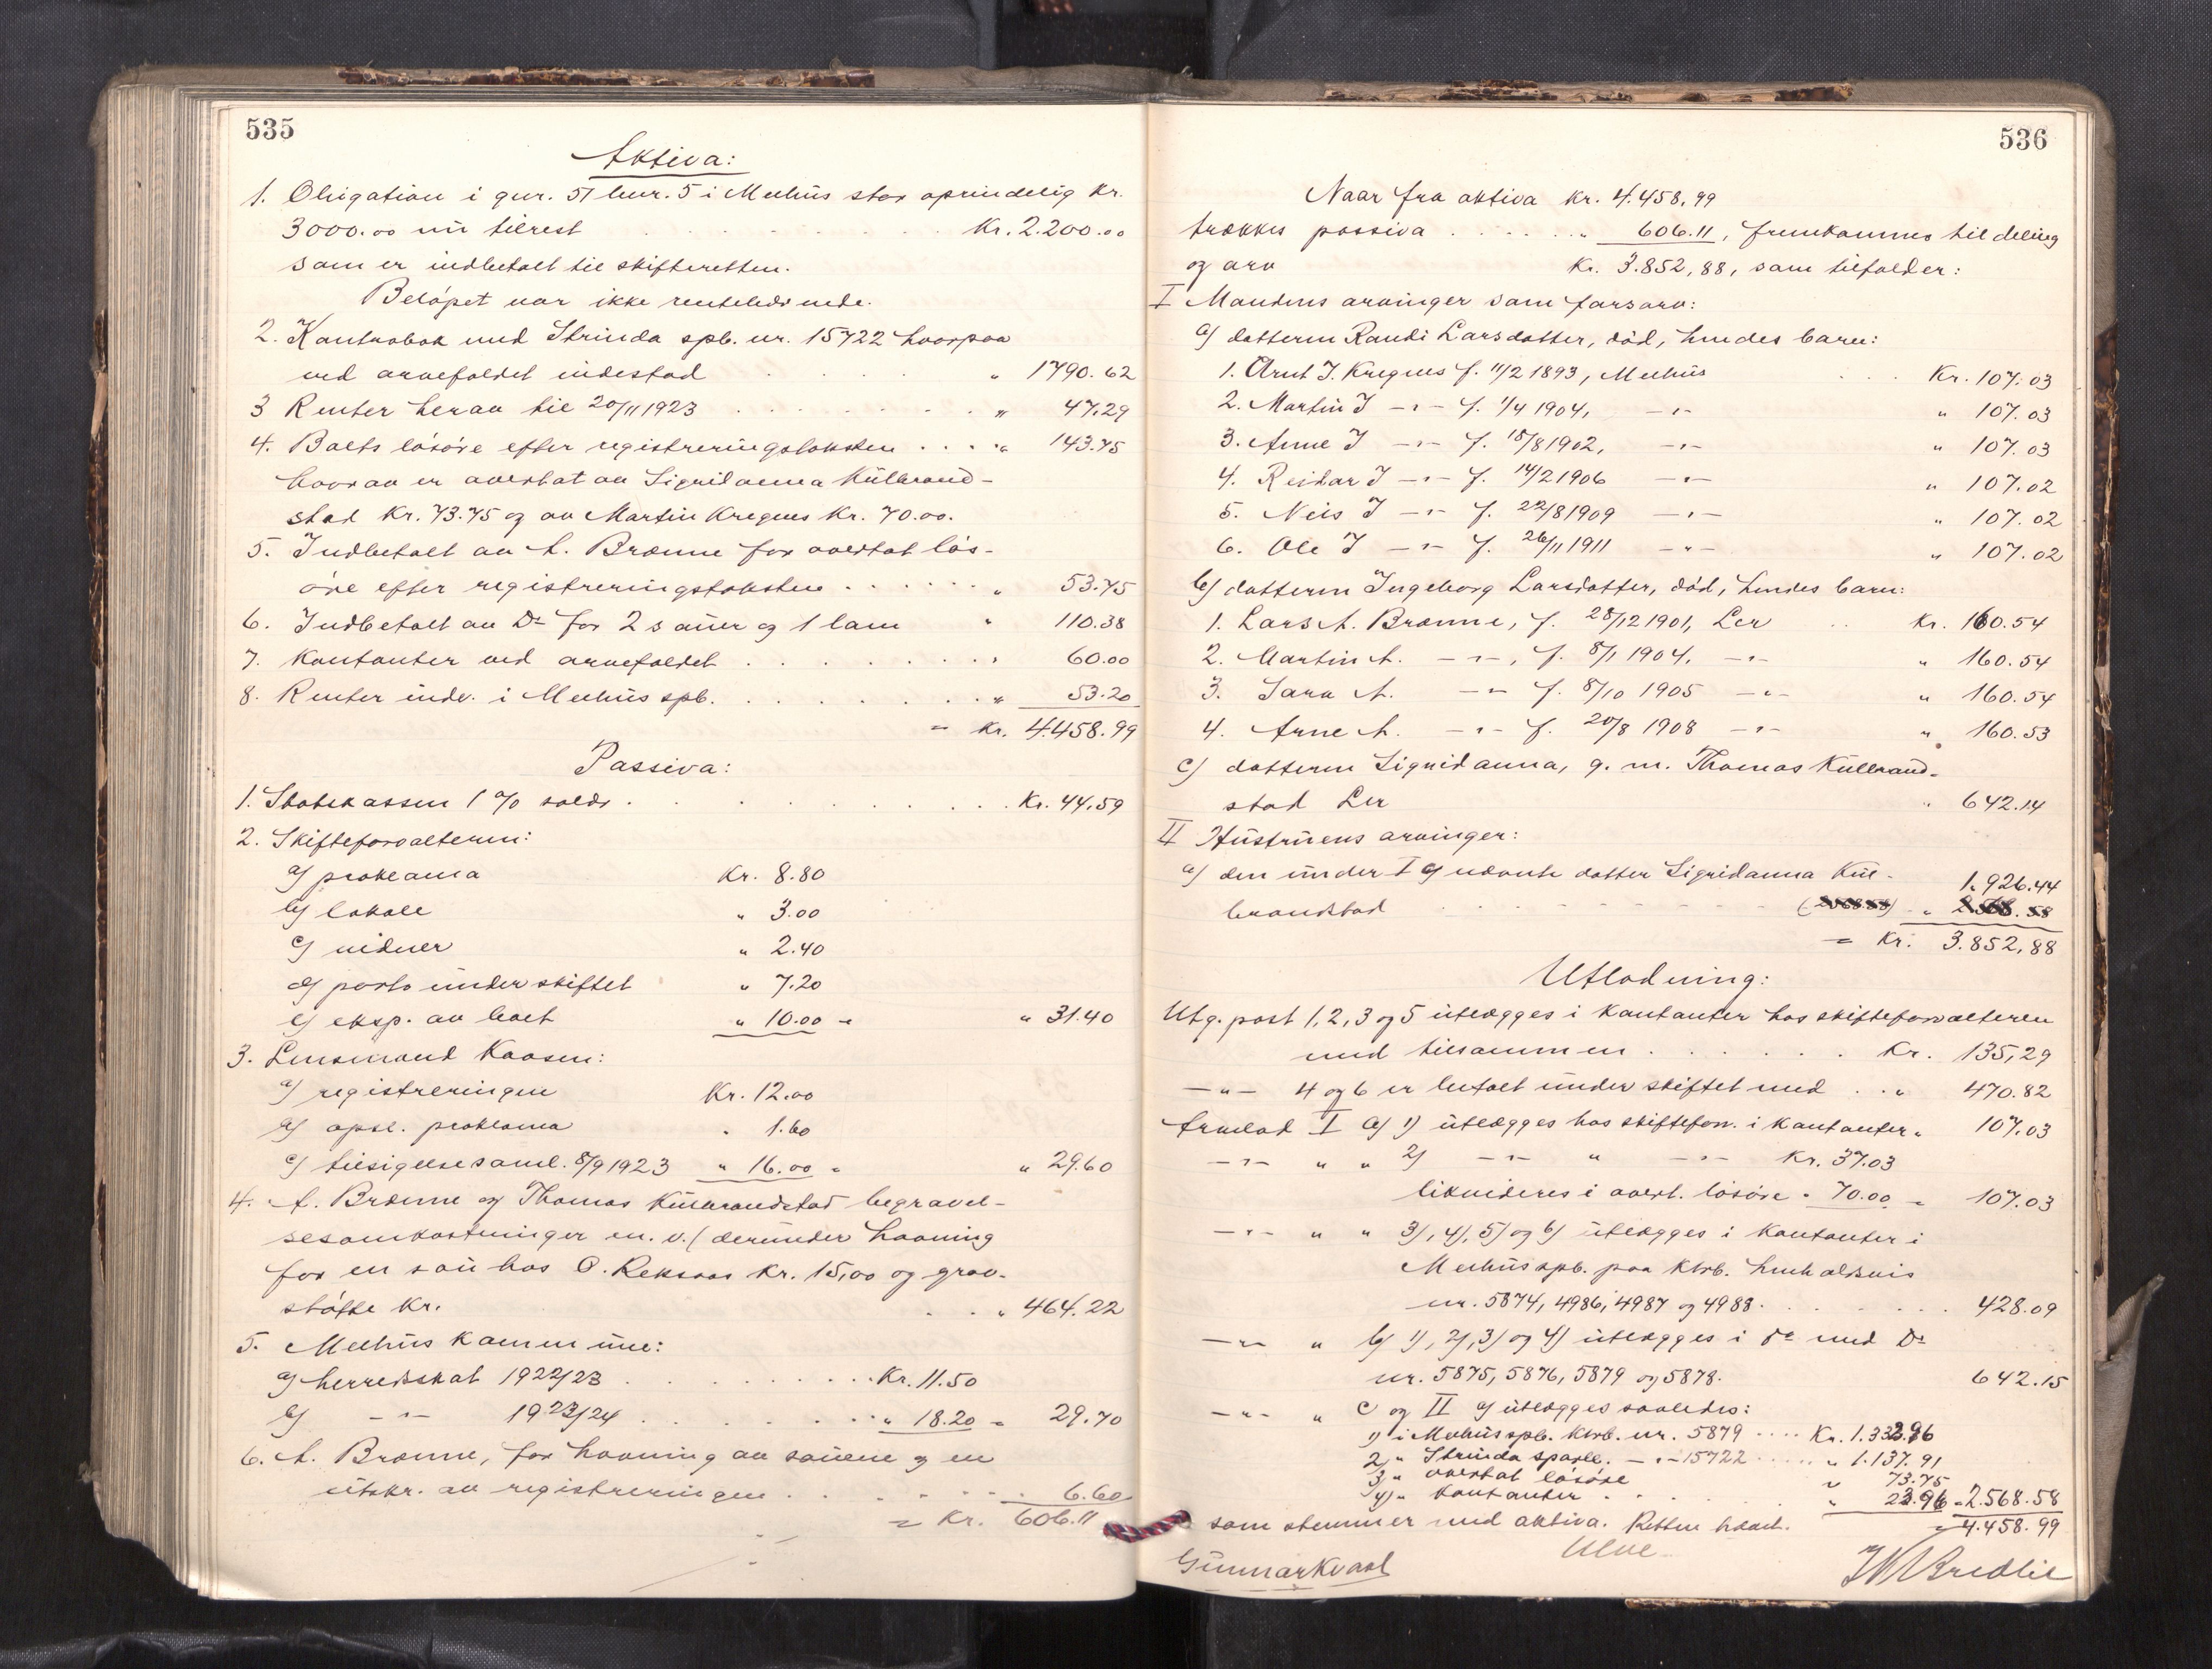 535
Aktiva:
1. Obligation i gnr. 51 bnr. 5 i Melhus stor oprindelig kr.
3000.00 nu tilrest . . . . . . Kr. 2.200.00
som er indbetalt til skifteretten.
Beløpet var ikke rentebærende.
2. Kontrabok med Strinda spb. nr. 15722 hvorpaa
ved arvefaldet indestod . . . . " 1790.62
3 Renter herav til 20/11 1923 . . . . . . . " 47.29
4. Boets løsøre efter registreringstaksten . . . . " 143.75
hvorav er overtat av Sigridanna Kulbrand-
stad Kr. 73.75 og av Martin Kregnes Kr. 70.00.
5. Indbetalt av A. Brønne for overtat løs-
øre efter registreringstaksten . . . . . . " 53.75
6. Indbetalt av Do for 2 sauer og 1 lam " 110.38
7. Kontanter ved arvefaldet . . . . . . . . " 60.00
8. Renter indv. i Melhus spb. . . . . . . . . " 53.20
= Kr. 4.458.99
Passiva:
1. Statskassen 1 % saldo . . . . . . . . . . Kr. 44.59
2. Skifteforvalteren:
a) proklama Kr. 8.80
b) lokale " 3.00
c) vidner " 2.40
d) porto under skiftet " 7.20
e) eksp. av boet " 10.00 = " 31.40
3. Lensmand Kaasen:
a) registreringen Kr. 12.00
b) opsl. proklama " 1.60
c) tilsigelse saml. 8/9 1923 " 16.00 = " 29.60
4. A. Brønne og Thomas Kulbrandstad begravel-
sesomkostninger m. v. (derunder havning
for en sau hos O. Reksaas Kr. 15,00 og grav-
støtte Kr. . . . " 464.22
5. Melhus kommune:
a) herredsskat 1922/23 . . . . . . . . . Kr. 11.50
b) -"- 1923/24 . . . . . . . . " 18.20 = 29.70
6. A. Brønne, for havning av sauene og en
utskr. av registreringen . . . . . . . 6.60
= Kr. 606.11
536
Naar fra aktiva Kr. 4.458,99
trækkes passiva . . . . . . " 606.11, fremkommer til deling
og arv Kr. 3.852,88, som tilfalder:
I Mandens arvinger som farsarv:
a) datteren Randi Larsdatter, død, hendes barn:
1. Arnt J. Kregnes f. 11/2 1893, Melhus . . . Kr. 107.03
2. Martin J -"- f. 1/4 1904, -"- " 107.03
3. Anne J -"- f. 18/8 1902, -"- " 107.03
4. Reidar J -"- f. 14/2 1906 -"- " 107.02
5. Nels J -"- f. 22/8 1909 -"- " 107.02
6. Ole J -"- f. 26/11 1911 -"- " 107.02
b) datteren Ingeborg Larsdatter, død, hendes barn:
1. Lars A. Brønne, f. 28/12 1901, Ler . . Kr. 160.54
2. Martin A. -"-, f. 8/1 1904. -"- " 160.54
3. Sara A. -"- f. 8/10 1905 -"- " 160.54
4. Arne A. -"- f. 20/8 1908 -"- " 160.53
c) datteren Sigridanna, g. m. Thomas Kulbrand-
stad Ler " 642.14
II Hustruens arvinger:
a) den under I c) nævnte datter Sigridanna Kul- 1.926.44
brandstad . . . . . . (2568.58) " 2.568.58
= Kr. 3.852,88
Utlodning:
Utg. post 1, 2, 3 og 5 utlægges i kontanter hos skifteforvalteren
med tilsammen . . . . . . Kr. 135,29
-"- 4 og 6 er betalt under skiftet med . . " 470.82
Arvelod I a) 1) utlægges hos skifteforv. i kontanter " 107.03
-"- " " 2) -"- " -"- Kr. 37.03
likvideres i overt. løsøre " 70.00 = 107.03
-"- " " 3), 4), 5) og 6) utlægges i kontanter i
Melhus spb. paa ktrb. henholdsvis
nr. 5874, 4986, 4987 og 4988. . . . . . . . 428.09
-"- " b) 1), 2), 3) og 4) utlægges i do med Do
nr. 5875, 5876, 5879 og 5878. 642.15
-"- " c og II a) utlægges saaledes:
1) i Melhus spb. ktrb. nr. 5879 . . . . Kr. 1.332.96
2 " Strinda sparb. -"- 15722 . . . . . " 1.137.91
3 " overtat løsøre " 73.75
4) " kontanter . . . . . " 23.96 = 2.568.58
som stemmer med aktiva. Retten hævet. = 4.458.99
Gunnar Kvaal